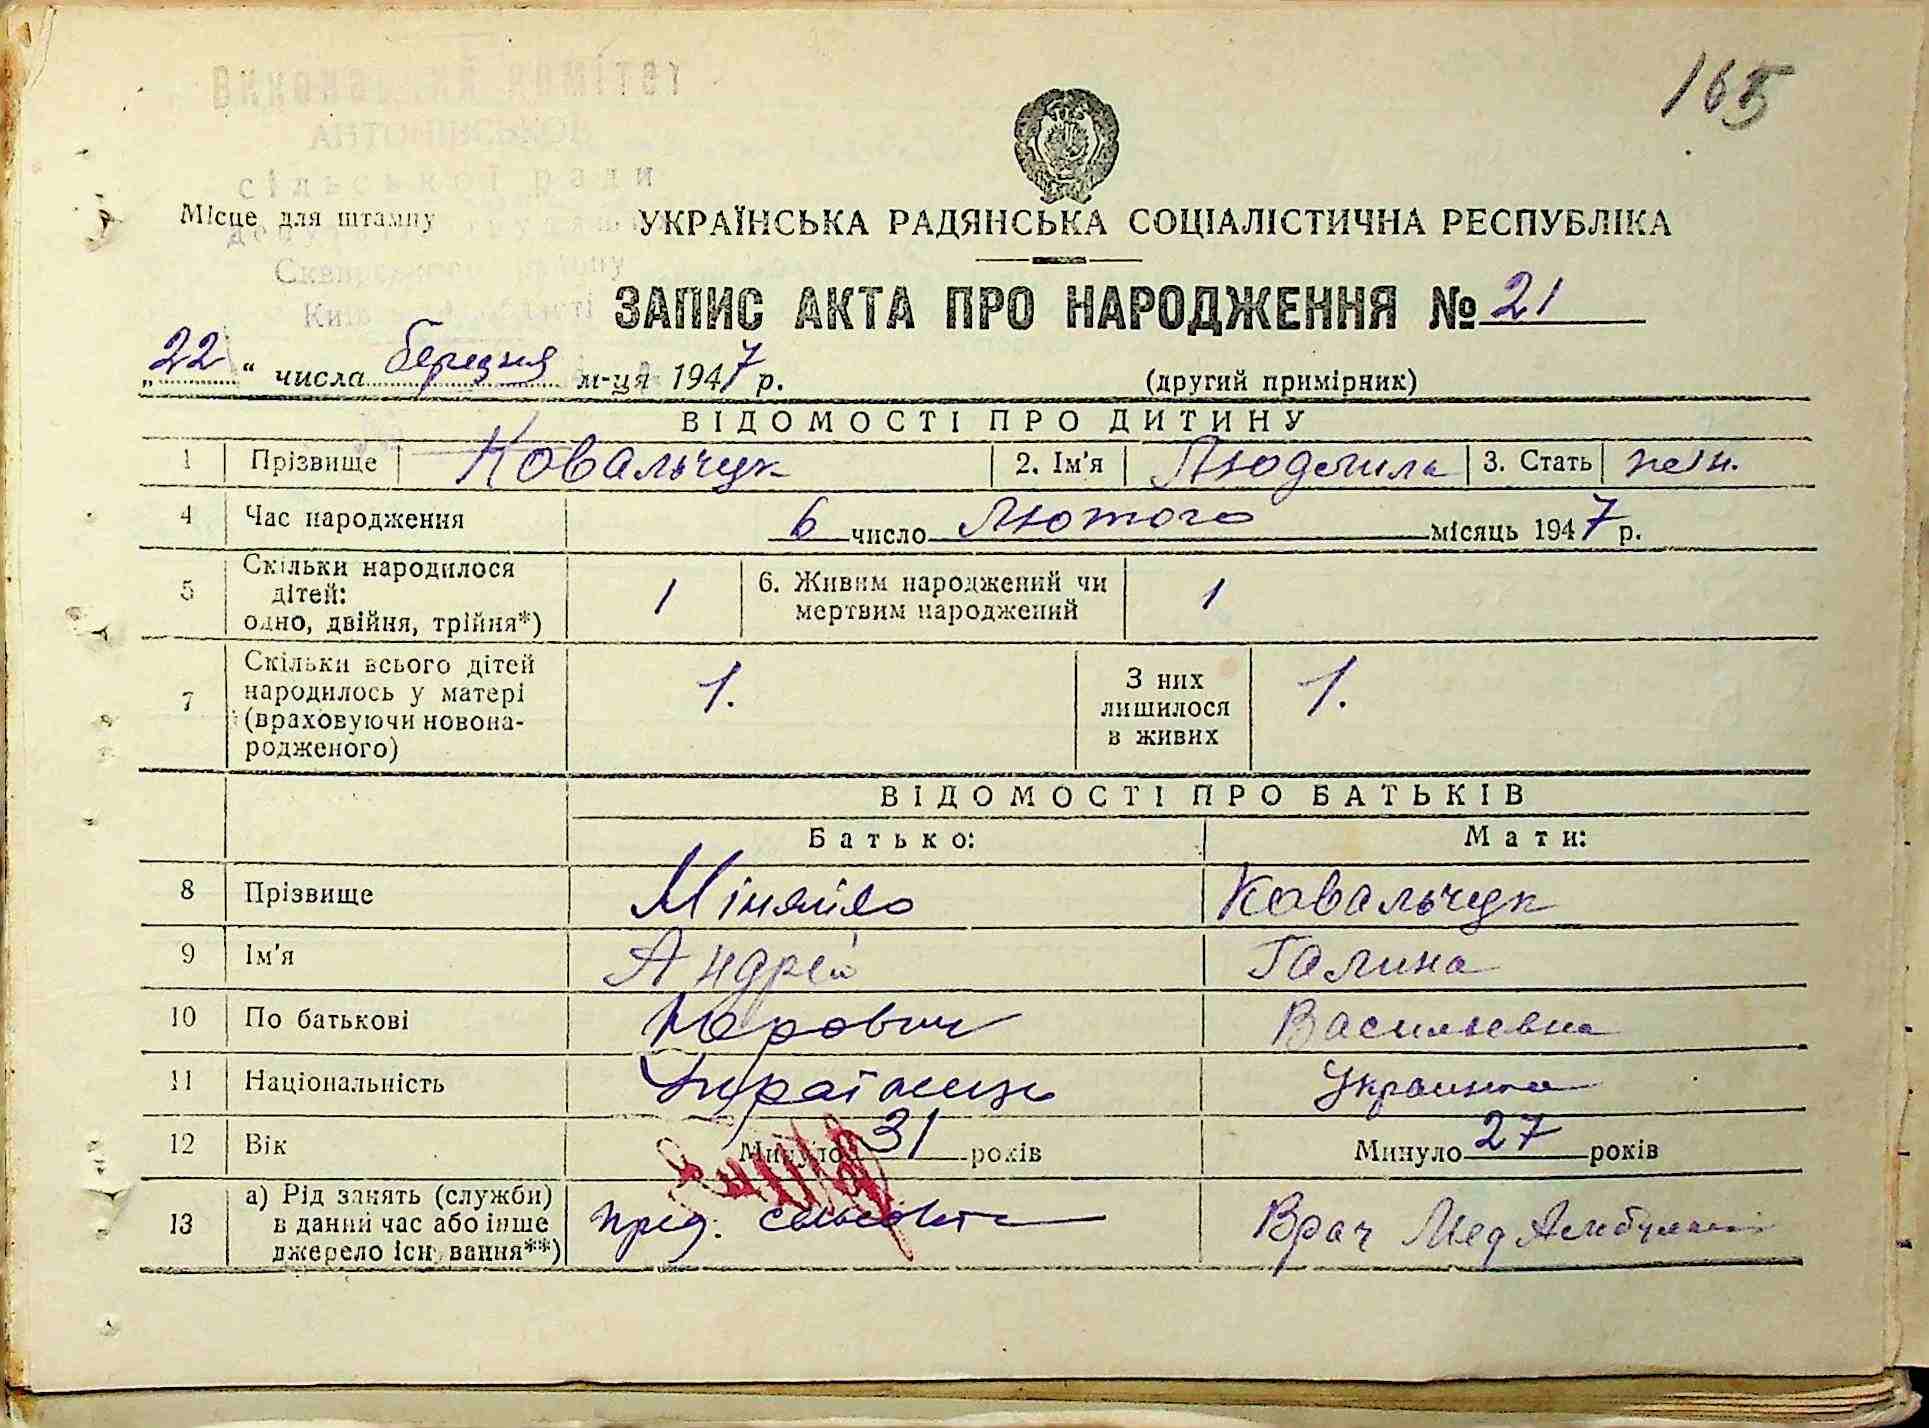 165
Виконавчий комітет
АНТОНІВСЬКОЇ
сільської ради
Місце для штампу
УКРАЇНСЬКА РАДЯНСЬКА СОЦІАЛІСТИЧНА РЕСПУБЛІКА
Сквирського району
Київської області
ЗАПИС АКТА ПРО НАРОДЖЕННЯ № 21
„22“ числа березня м-ця 1947 р. (другий примірник)
ВІДОМОСТІ ПРО ДИТИНУ
1 Прізвище Ковальчук 2. Ім'я Людмила 3. Стать жін.
4 Час народження 6 число Лютого місяць 1947 р.
5 Скільки народилося дітей: одно, двійня, трійня*) 1 6. Живим народжений чи мертвим народжений 1
7 Скільки всього дітей народилось у матері (враховуючи новонародженого) 1. З них лишилося в живих 1.
ВІДОМОСТІ ПРО БАТЬКІВ
Батько: Мати:
8 Прізвище Міняйло Ковальчук
9 Ім'я Андрей Галина
10 По батькові Васильевна
11 Національність Українець Украинка
12 Вік Минуло 31 років Минуло 27 років
13 а) Рід занять (служби) в даний час або інше джерело існування**) пред. сельсовета Врач Мед